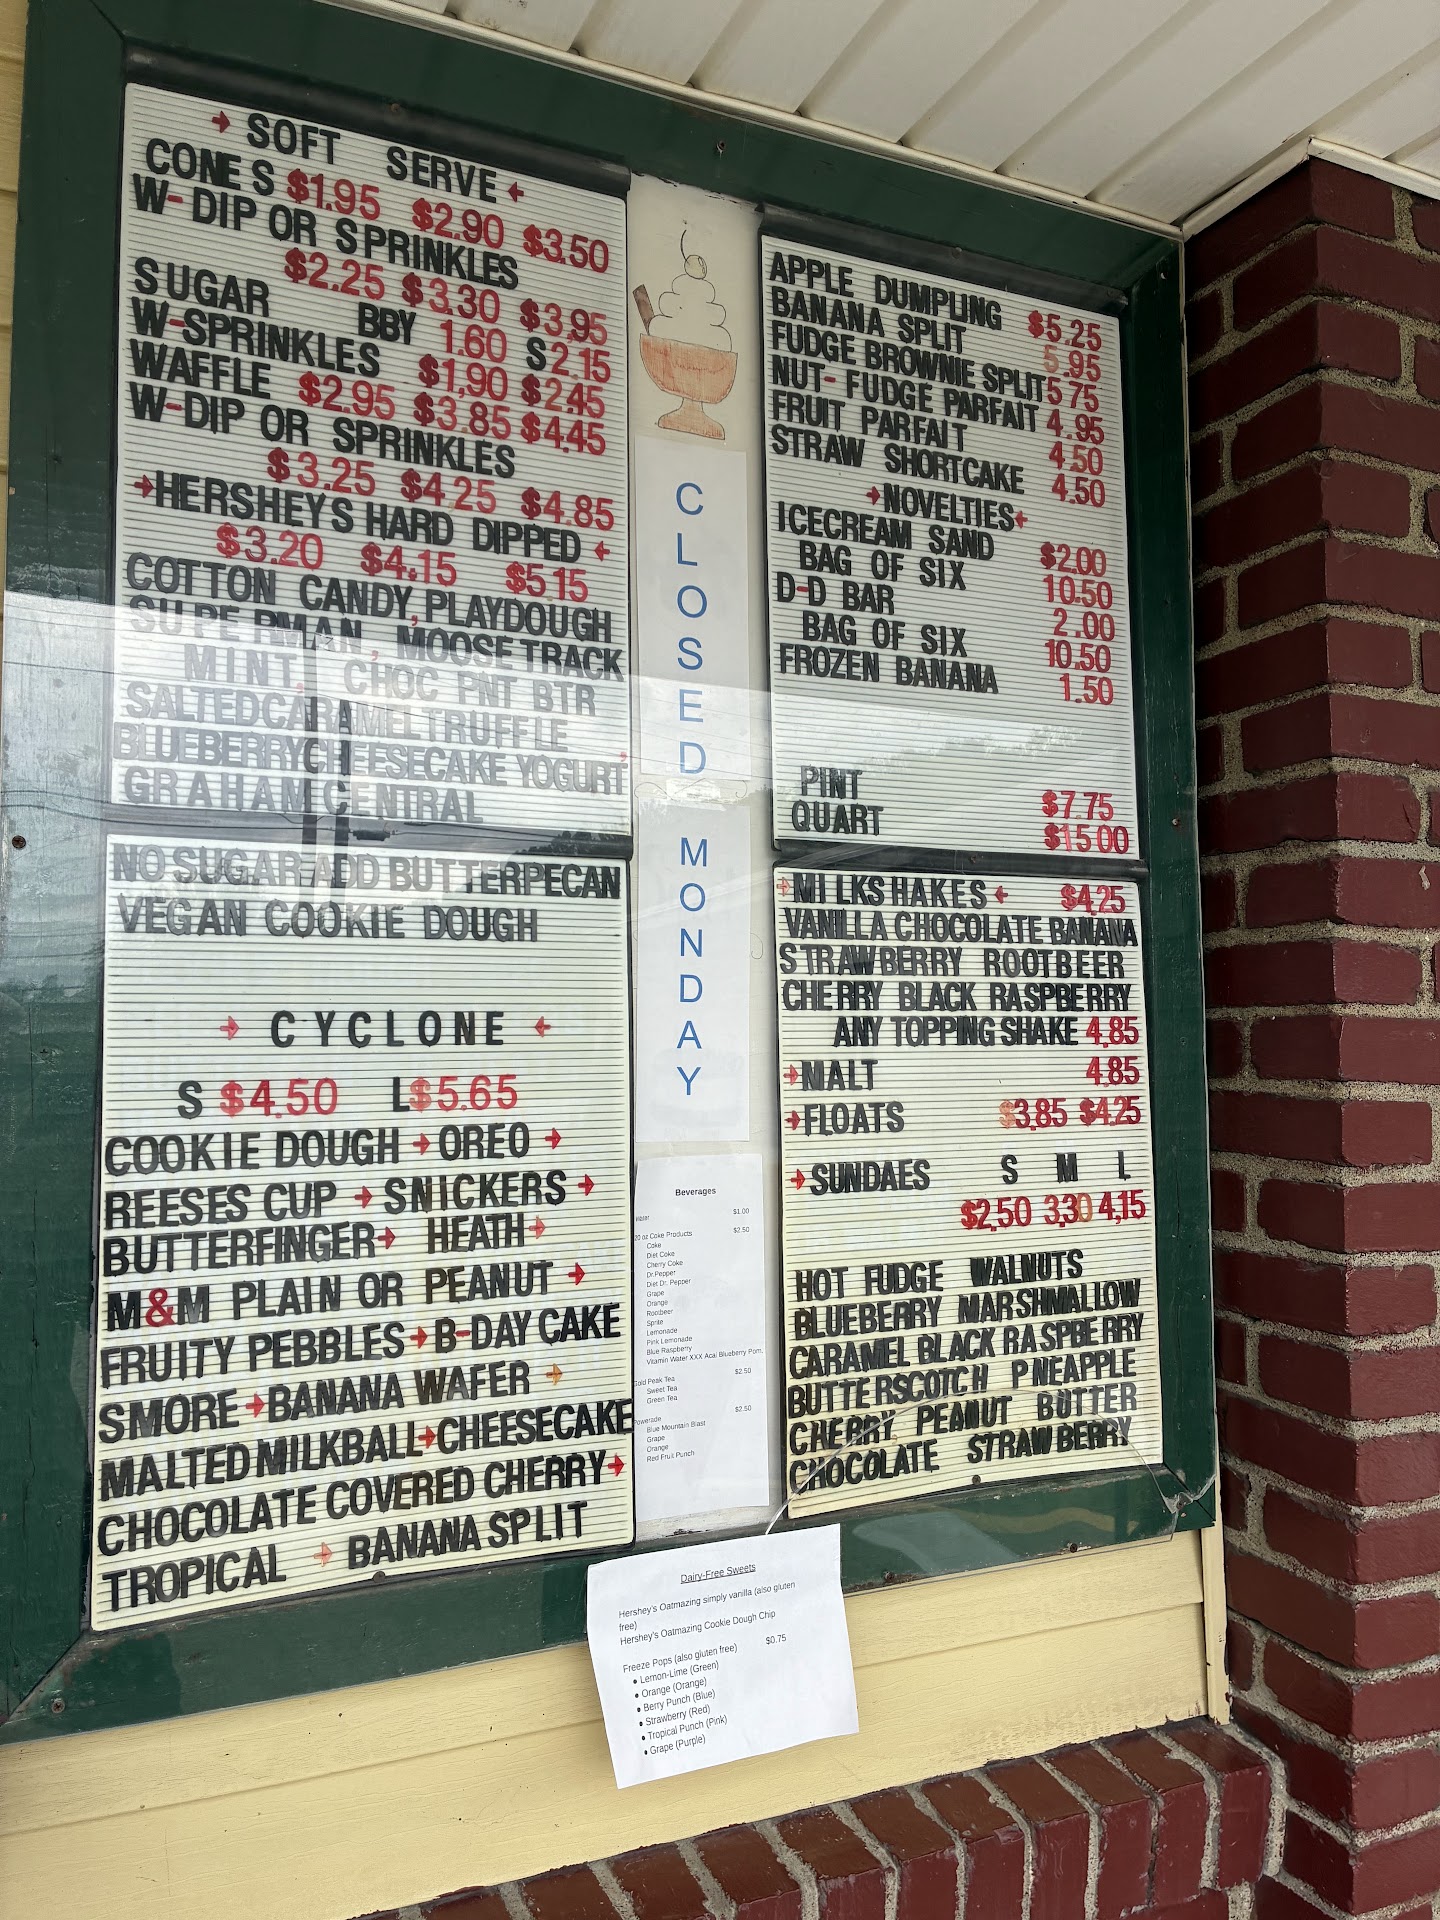 → SOFT SERVE ←
CONES $1.95 $2.90 $3.50
W-DIP OR SPRINKLES
$2.25 $3.30 $3.95
SUGAR BBY 1.60 S 2.15
W-SPRINKLES $1,90 $2.45
WAFFLE $2.95 $3.85 $4.45
W-DIP OR SPRINKLES
$3.25 $4.25 $4.85
→HERSHEYS HARD DIPPED ←
$3.20 $4.15 $5.15
COTTON CANDY, PLAYDOUGH
SUPERMAN, MOOSE TRACK
MINT, CHOC PNT BTR
SALTEDCARAMELTRUFFLE
BLUEBERRYCHEESECAKE YOGURT,
GRAHAM CENTRAL
NO SUGAR ADD BUTTERPECAN
VEGAN COOKIE DOUGH
→ CYCLONE ←
S $4.50 L$5.65
COOKIE DOUGH → OREO →
REESES CUP → SNICKERS →
BUTTERFINGER→ HEATH→
M&M PLAIN OR PEANUT →
FRUITY PEBBLES→B-DAY CAKE
SMORE→BANANA WAFER →
MALTED MILKBALL→CHEESECAKE
CHOCOLATE COVERED CHERRY→
TROPICAL → BANANA SPLIT
CLOSED MONDAY
Beverages
Water $1.00
20 oz Coke Products $2.50
Coke
Diet Coke
Cherry Coke
Dr.Pepper
Diet Dr. Pepper
Grape
Orange
Rootbeer
Sprite
Lemonade
Pink Lemonade
Blue Raspberry
Vitamin Water XXX Acai Blueberry Pom.
Gold Peak Tea $2.50
Sweet Tea
Green Tea
Powerade $2.50
Blue Mountain Blast
Grape
Orange
Red Fruit Punch
APPLE DUMPLING $5.25
BANANA SPLIT 5.95
FUDGE BROWNIE SPLIT 5 75
NUT-FUDGE PARFAIT 4.95
FRUIT PARFAIT 4.50
STRAW SHORTCAKE 4.50
→NOVELTIES←
ICECREAM SAND $2.00
BAG OF SIX 10.50
D-D BAR 2.00
BAG OF SIX 10.50
FROZEN BANANA 1.50
PINT $7.75
QUART $15.00
→MILKSHAKES← $4.25
VANILLA CHOCOLATE BANANA
STRAWBERRY ROOTBEER
CHERRY BLACK RASPBERRY
ANY TOPPING SHAKE 4.85
→MALT 4.85
→FLOATS $3.85 $4.25
→SUNDAES S M L
$2.50 3.30 4,15
HOT FUDGE WALNUTS
BLUEBERRY MARSHMALLOW
CARAMEL BLACK RASPBERRY
BUTTERSCOTCH PNEAPPLE
CHERRY PEANUT BUTTER
CHOCOLATE STRAWBERRY
Dairy-Free Sweets
Hershey's Oatmazing simply vanilla (also gluten
free)
Hershey's Oatmazing Cookie Dough Chip
Freeze Pops (also gluten free) $0.75
• Lemon-Lime (Green)
• Orange (Orange)
• Berry Punch (Blue)
• Strawberry (Red)
• Tropical Punch (Pink)
• Grape (Purple)